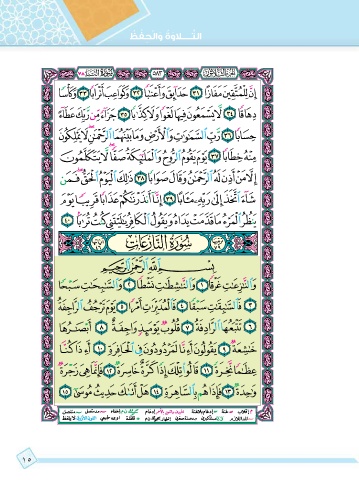 التـــلاوة والحفظ
٥٨٣
إِنَّ لِلْمُتَّقِينَ مَفَازًا ٣١ حَدَآئِقَ وَأَعْنَٰبًا ٣٢ وَكَوَاعِبَ أَتْرَابًا ٣٣ وَكَأْسًا
دِهَاقًا ٣٤ لَّا يَسْمَعُونَ فِيهَا لَغْوًا وَلَا كِذَّٰبًا ٣٥ جَزَآءً مِّن رَّبِّكَ عَطَآءً
حِسَابًا ٣٦ رَّبِّ ٱلسَّمَٰوَٰتِ وَٱلْأَرْضِ وَمَا بَيْنَهُمَا ٱلرَّحْمَٰنِ لَا يَمْلِكُونَ
مِنْهُ خِطَابًا ٣٧ يَوْمَ يَقُومُ ٱلرُّوحُ وَٱلْمَلَٰٓئِكَةُ صَفًّا لَّا يَتَكَلَّمُونَ
إِلَّا مَنْ أَذِنَ لَهُ ٱلرَّحْمَٰنُ وَقَالَ صَوَابًا ٣٨ ذَٰلِكَ ٱلْيَوْمُ ٱلْحَقُّ فَمَن
شَآءَ ٱتَّخَذَ إِلَىٰ رَبِّهِۦ مَـَٔابًا ٣٩ إِنَّآ أَنذَرْنَٰكُمْ عَذَابًا قَرِيبًا يَوْمَ
يَنظُرُ ٱلْمَرْءُ مَا قَدَّمَتْ يَدَاهُ وَيَقُولُ ٱلْكَافِرُ يَٰلَيْتَنِى كُنتُ تُرَٰبًۢا ٤٠
سُورَةُ النَّازِعَاتِ
بِسْمِ ٱللَّهِ ٱلرَّحْمَٰنِ ٱلرَّحِيمِ
وَٱلنَّٰزِعَٰتِ غَرْقًا ١ وَٱلنَّٰشِطَٰتِ نَشْطًا ٢ وَٱلسَّٰبِحَٰتِ سَبْحًا
٣ فَٱلسَّٰبِقَٰتِ سَبْقًا ٤ فَٱلْمُدَبِّرَٰتِ أَمْرًا ٥ يَوْمَ تَرْجُفُ ٱلرَّاجِفَةُ
٦ تَتْبَعُهَا ٱلرَّادِفَةُ ٧ قُلُوبٌ يَوْمَئِذٍ وَاجِفَةٌ ٨ أَبْصَٰرُهَا
خَٰشِعَةٌ ٩ يَقُولُونَ أَءِنَّا لَمَرْدُودُونَ فِى ٱلْحَافِرَةِ ١٠ أَءِذَا كُنَّا
عِظَٰمًا نَّخِرَةً ١١ قَالُوا۟ تِلْكَ إِذًا كَرَّةٌ خَاسِرَةٌ ١٢ فَإِنَّمَا هِىَ زَجْرَةٌ
وَٰحِدَةٌ ١٣ فَإِذَا هُم بِٱلسَّاهِرَةِ ١٤ هَلْ أَتَىٰكَ حَدِيثُ مُوسَىٰٓ ١٥
١٥